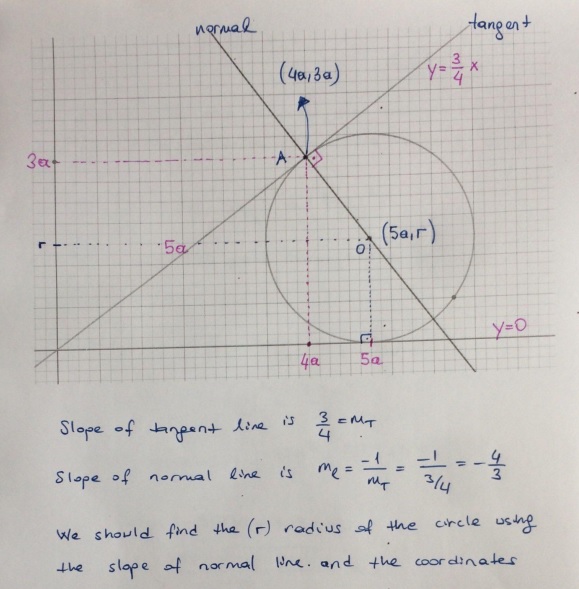 normal
tangent
(4a,3a)
y=3/4 x
A
3a
r
5a
O
(5a,r)
y=0
4a
5a
Slope of tangent line is 3/4 = m_T
Slope of normal line is m_l = -1/m_T = -1/3/4 = -4/3
We should find the (r) radius of the circle using
the slope of normal line. and the coordinates